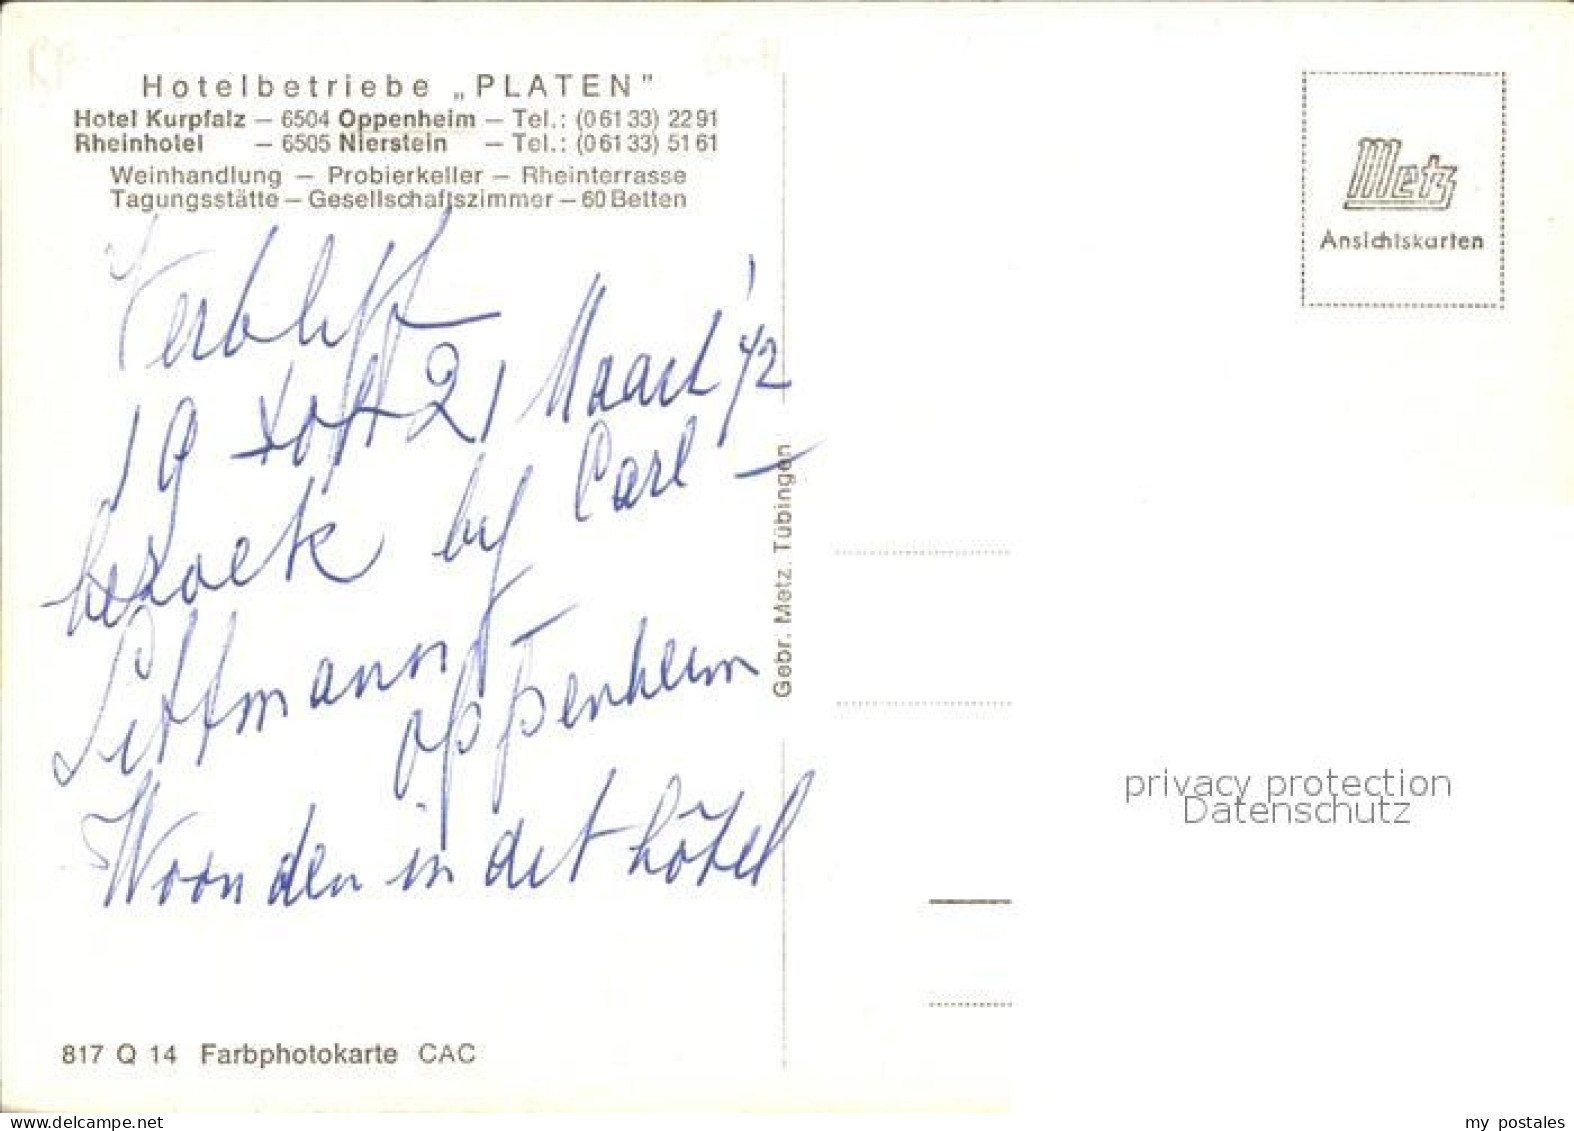 Hotelbetriebe „PLATEN"
Hotel Kurpfalz — 6504 Oppenheim — Tel.: (0 61 33) 22 91
Rheinhotel — 6505 Nierstein — Tel.: (0 61 33) 51 61
Weinhandlung — Probierkeller — Rheinterrasse
Tagungsstätte — Gesellschaftszimmer — 60 Betten
Metz
Ansichtskarten
19 21 Maart
bezoek by Carl
Sittmann
Oppenheim
Woonden in det hôtel
Gebr. Metz, Tübingen
privacy protection
Datenschutz
817 Q 14 Farbphotokarte CAC
my postales